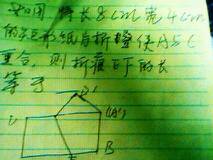 如图，将长8cm宽4cm
的矩形纸片折叠使A与C
重合，则折痕EF的长
等于
D'
(A')
B